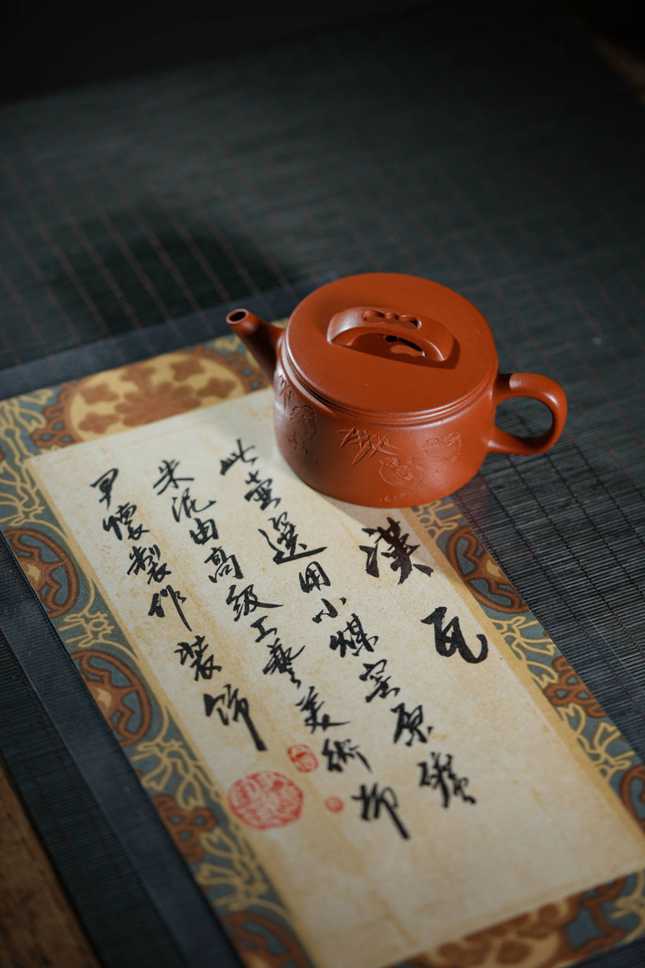 漢瓦
此壺選用小煤窑原礦
朱泥由高級工藝美術師
懷製作裝飾